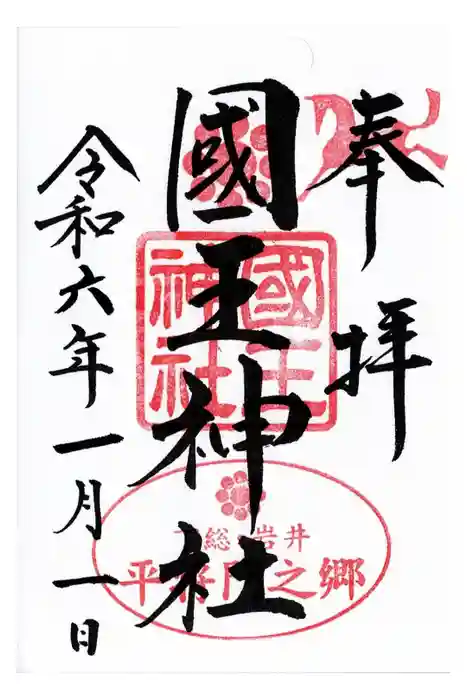 奉拝
國王神社
令和六年一月一日
國王
神社
下総 岩井
平将門之郷